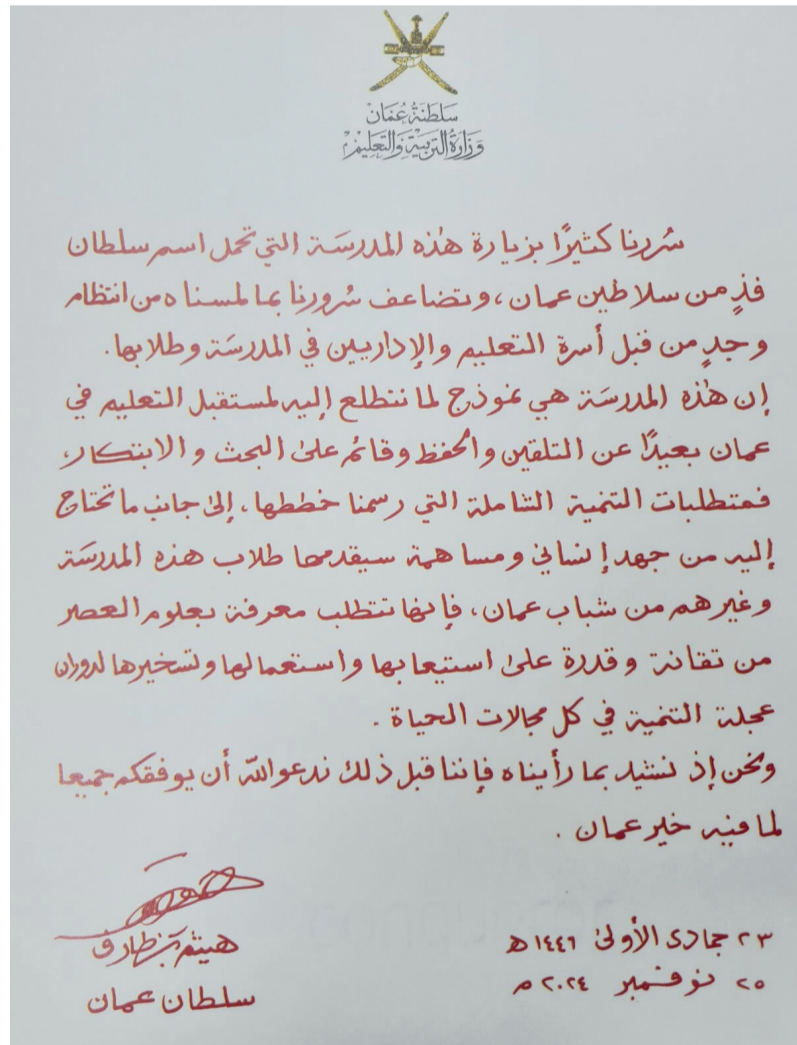 سلطنة عُمان
وزارة التربية والتعليم
سُررنا كثيرًا بزيارة هٰذه المدرسَة التي تحمل اسم سلطان
فذٍ من سلاطين عمان، وتضاعف سُرورنا بما لمسناه من انتظام
وجدٍ من قبل أسرة التعليم والإداريين في المدرسَة وطلابها.
إن هٰذه المدرسَة هي نموذج لما نتطلع إليه لمستقبل التعليم في
عمان بعيدًا عن التلقين والحفظ وقائم على البحث والابتكار،
فمتطلبات التنمية الشاملة التي رسمنا خططها، إلى جانب ما تحتاج
إليه من جهد إنساني ومساهمة سيقدمها طلاب هذه المدرسَة
وغيرهم من شباب عمان، فإنها تتطلب معرفة بعلوم العصر
من تقانة وقدرة على استيعابها واستعمالها وتسخيرها لدوران
عجلة التنمية في كل مجالات الحياة.
ونحن إذ نشيد بما رأيناه فإننا قبل ذلك ندعو الله أن يوفقكم جميعا
لما فيه خير عمان.
هيثم بن طارق
سلطان عمان
٢٣ جمادى الأولى ١٤٤٦ ه
٢٥ نوفمبر ٢٠٢٤ م